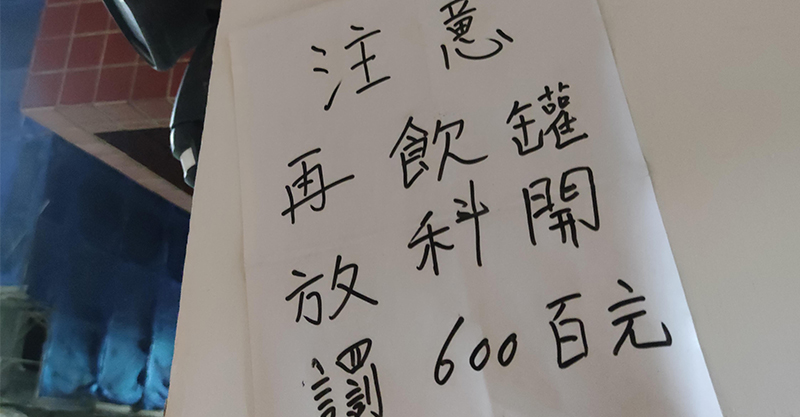 注意
再飲罐
放科開
罰600百元